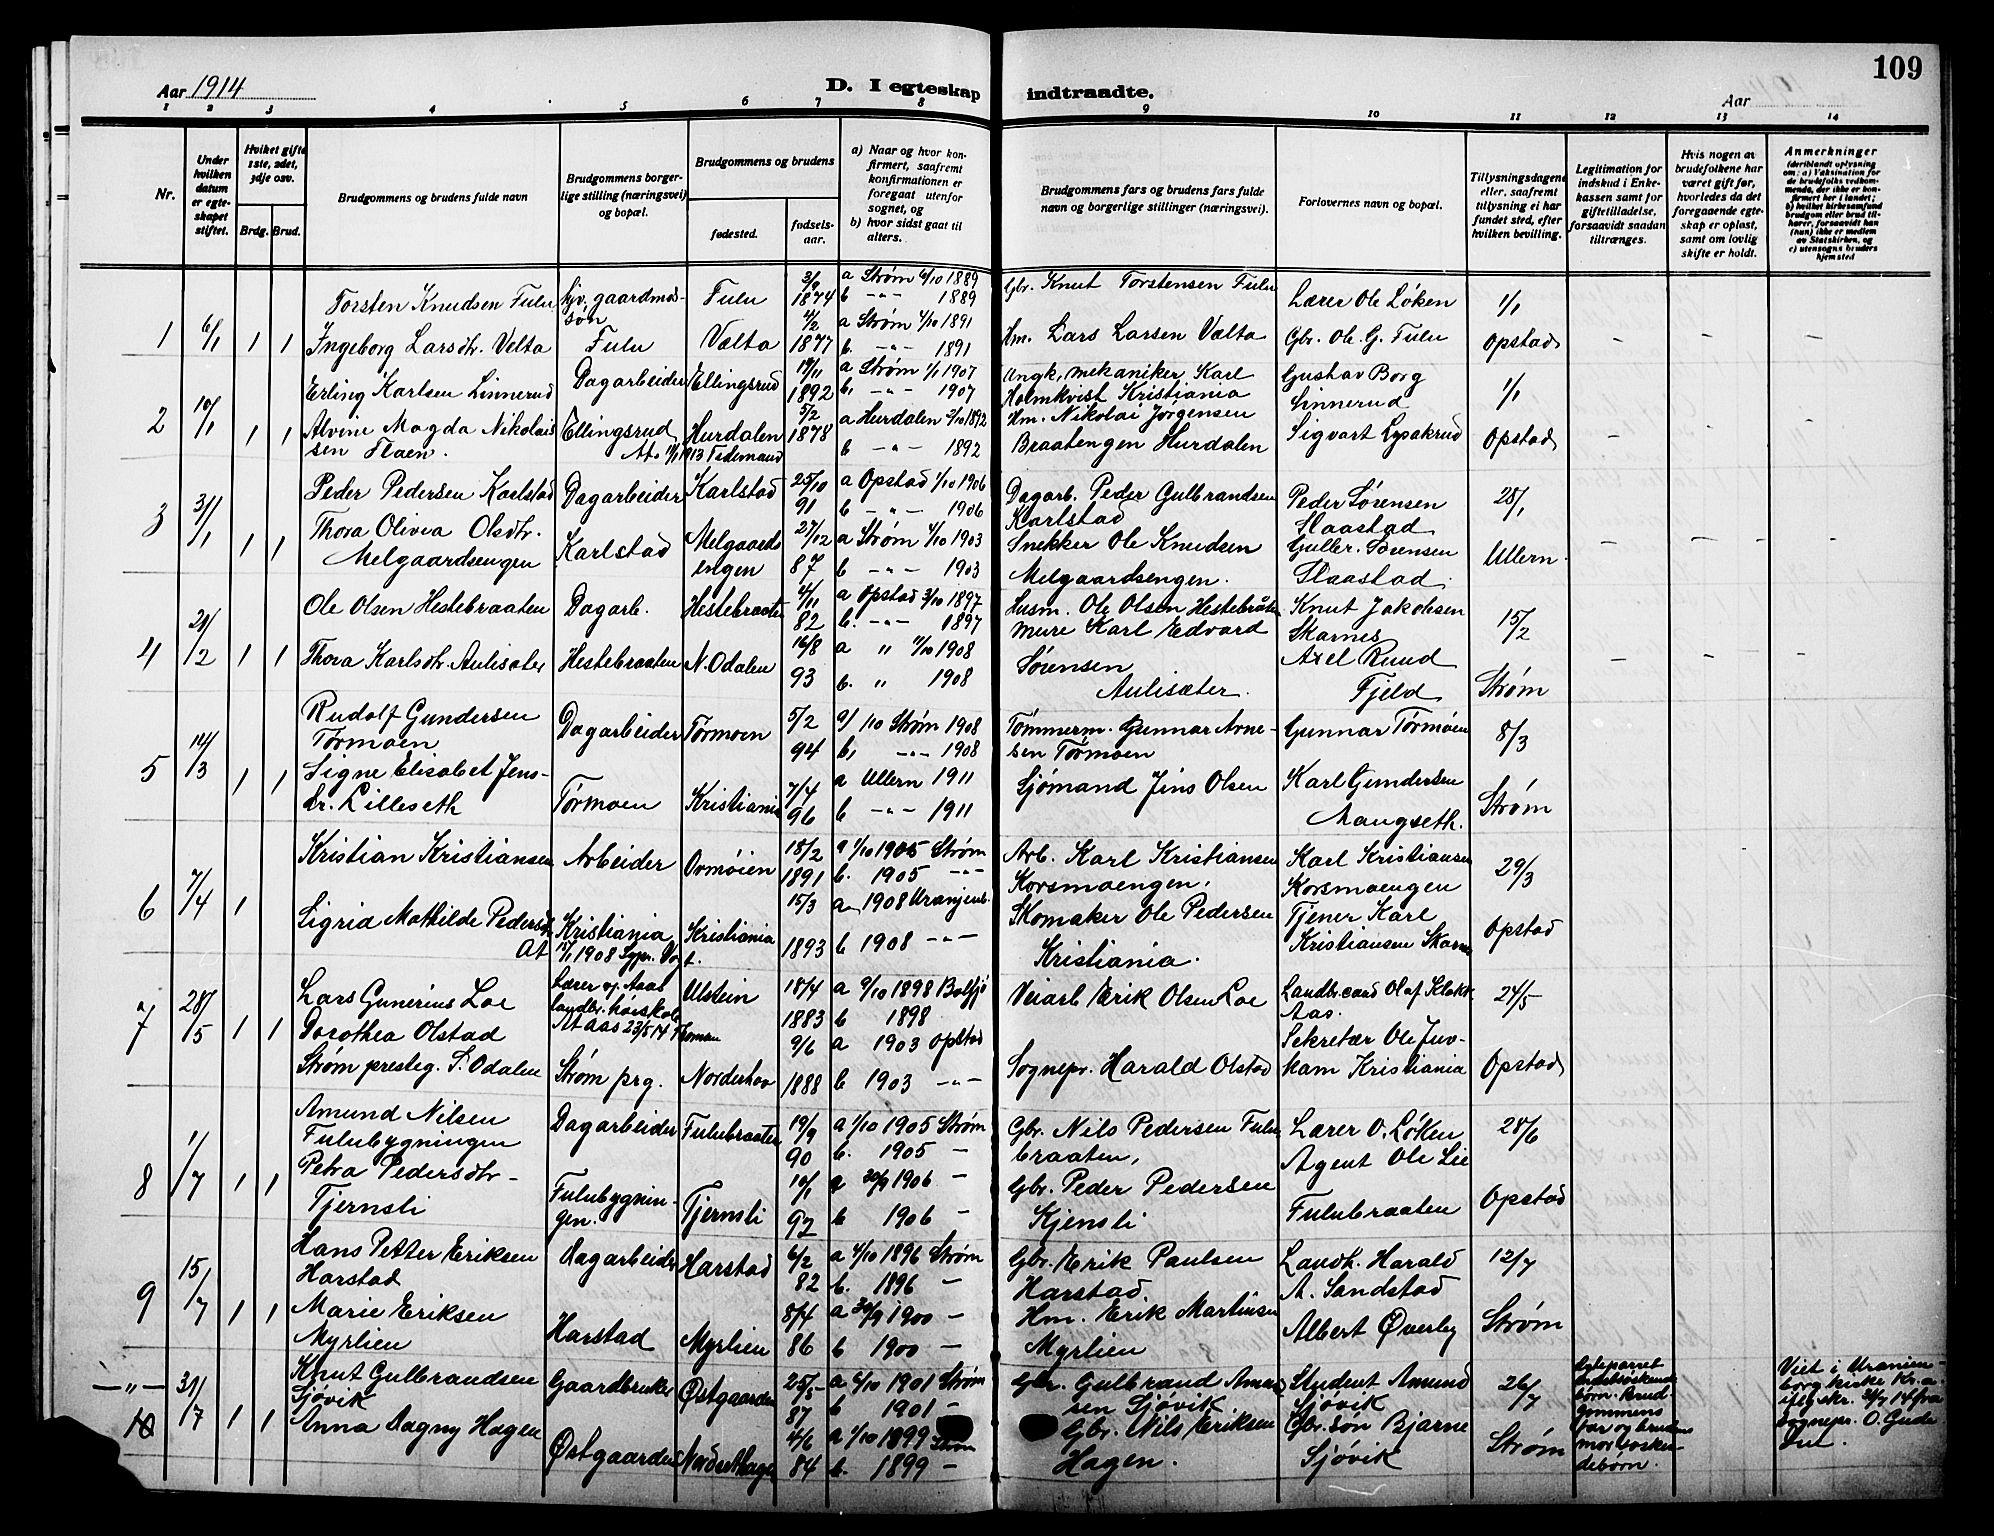 109
Aar 1914
D. I egteskap indtraadte.
Aar
1 2 3 4 5 6 7 8 9 10 11 12 13 14
Nr.
Under hvilken datum er egteskapet stiftet.
Hviket gifte 1ste, 2det, 3dje osv.
Brdg. Brud.
Brudgommens og brudens fulde navn
Brudgommens borgerlige stilling (næringsvei) og bopæl.
Brudgommens og brudens
fødested.
fødselsaar.
a) Naar og hvor konfirmert, saafremt konfirmationen er foregaat utenfor sognet, og
b) hvor sidst gaat til alters.
Brudgommens fars og brudens fars fulde navn og borgerlige stillinger (næringsvei).
Forlovernes navn og bopæl.
Tillysningsdagene eller, saafremt tillysning ei har fundet sted, efter hvilken bevilling.
Legitimation for indskud i Enkekassen samt for giftetilladelse, forsaavidt saadan tiltrænges.
Hvis nogen av brudefolkene har været gift før, hvorledes da det foregaaende egteskap er opløst, samt om lovlig skifte er holdt.
Anmerkninger
1 6/1 1 1
Torsten Knudsen Fulu
gaardmandssøn Fulu
Fulu 3/9 1874
a Strøm 6/10 1889
b -"- 1889
Gbr. Knut Torstensen Fulu
Lærer Ole Løken
1/1
Ingeborg Larsdtr. Velta
Vælta 4/2 1877
a Strøm 4/10 1891
b. -"- 1891
Hm. Lars Larsen Vælta
Gbr. Ole G. Fulu
Opstad
2 10/1 1 1
Erling Karlsen Linnerud
Dagarbeider Ellingsrud
Ellingsrud 19/11 1892
a Strøm 1/9 1907
b. -"- 1907
Ungk, mekaniker Karl
Holmkvist Kristiania
Gustav Borg
Linnerud
1/1
Alvine Magda Nikolaisen Flaen.
Hurdalen 5/2 1878
a Hurdalen 2/10 1892
b -"- 1892
Hm. Nikolai Jørgensen
Braatengen Hurdalen
Sigvart Lysakrud
Opstad
3 31/1 1 1
Peder Pedersen Karlstad
Dagarbeider Karlstad
Karlstad 25/10 91
a Opstad 1/10 1906
b -"- 1906
Dagarb. Peder Gulbrandsen
Karlstad
Peder Sørensen
Slaastad
25/1
Thora Olivia Olsdtr.
Melgaardsengen
Melgaardsengen 27/12 87
a Strøm 4/10 1903
b -"- 1903
Snekker Ole Knudsen
Melgaardsengen.
Guller. Sørensen
Slaastad.
Ullern.
4 21/2 1 1
Ole Olsen Hestebraaten
Dagarb. Hestebraaten
Hestebraaten 4/11 82
a Opstad 3/10 1897
b. -"- 1897
Husm. Ole Olsen Hestebråten
Knut Jakobsen
Skarnes
15/2
Thora Karlsdtr. Aulisæter
N. Odalen 16/8 93
a " 11/10 1908
b. " 1908
Mure Karl Edvard
Sørensen
Aulisæter.
Axel Ruud
Fjeld
Strøm
5 14/3 1 1
Rudolf Gundersen
Tørmoen
Dagarbeider Tørmoen
Tørmoen 5/2 94
a/10 Strøm 1908
b, -"- 1908
Tømmerm. Gunnar Arnesen Tørmoen
Gunnar Tørmoen
8/3
Signe Elisabet Jensdr. Lilleseth
Kristiania 7/4 96
a Ullern 1911
b -"- 1911
Sjømand Jens Olsen
Karl Gundersen
Mangseth.
Strøm
6 7/4 1
Kristian Kristiansen
Arbeider
Ormøien 18/2 1891
a 1/10 1905 Strøm
b. 1905 -"-
Arb. Karl Kristiansen
Korsmoengen,
Karl Kristiansen
Korsmoengen
29/3
Sigrid Mathilde Pedersdtr
Kristiania
Kristiania 15/3 1893
a 1908 Uranienb.
b 1908 -"-
Skomaker Ole Pedersen
Kristiania.
Tjener Karl
Kristiansen Skarnes
Opstad
7 28/5 1 1
Lars Gunerius Loe
Lærer v. Aaas
landbr. høiskole
Ulstein 18/4 1883
a 9/10 1898
b 1898
Veiarb Erik Olsen Loe
Landbr.cand Olaf Klokk
Aas.
24/5
Dorothea Olstad
Strøm presteg. S. Odalen
Strøm prg.
Norderhov 9/6 1888
a 1903 Opstad
b 1903 -"-
Sognepr. Harald Olstad
Sekretær Ole Juvkam Kristiania
Opstad
8 1/7 1 1
Amund Nilsen
Fulubygningen
Dagarbeider Fulubygningen.
Fulubraaten 19/9 90
a 1/10 1905 Strøm
b. 1905 -
Gbr. Nils Pedersen Fulubraaten,
Lærer O. Løken
28/6
Petra Pedersdtr-
Tjernsli
Tjernsli 10/1 92
a 30/9 1906 -
b 1906 -
Gbr. Peder Pedersen
Kjensli
Agent Ole Lie
Fulubraaten
Opstad
9 15/7 1 1
Hans Petter Eriksen
Harstad
Dagarbeider Harstad
Harstad 6/2 82
a 4/10 1896 Strøm
b. 1896 -
Gbr. Erik Paulsen
Harstad.
Landh. Harald
A. Sandstad
12/7
Marie Eriksen
Myrlien
Myrlien 8/4 86
a 30/9 1900 -
b 1900 -
Hm. Erik Martinsen
Myrlien
Albert Øverby
Strøm
-"- 10 31/7 1 1
Knut Gulbrandsen
Sjøvik
Gaardbruker Østgaarden
Østgaarden 25/5 87
a 6/10 1901 Strøm
b 1901 -
Gbr. Gulbrand Amundsen Sjøvik
Student Amund
Sjøvik
26/7
Anna Dagny Hagen
4/6 84
a 1/10 1899 Strøm
b. 1899 -
Gbr. Nils Eriksen
Hagen.
Gbr.søn Bjarne
Sjøvik
Strøm
Egteparret
søskendebørn. Brudgommens
far og brudens
mor søskendebørn.
Viet i Uranienborg kirke Kr.a